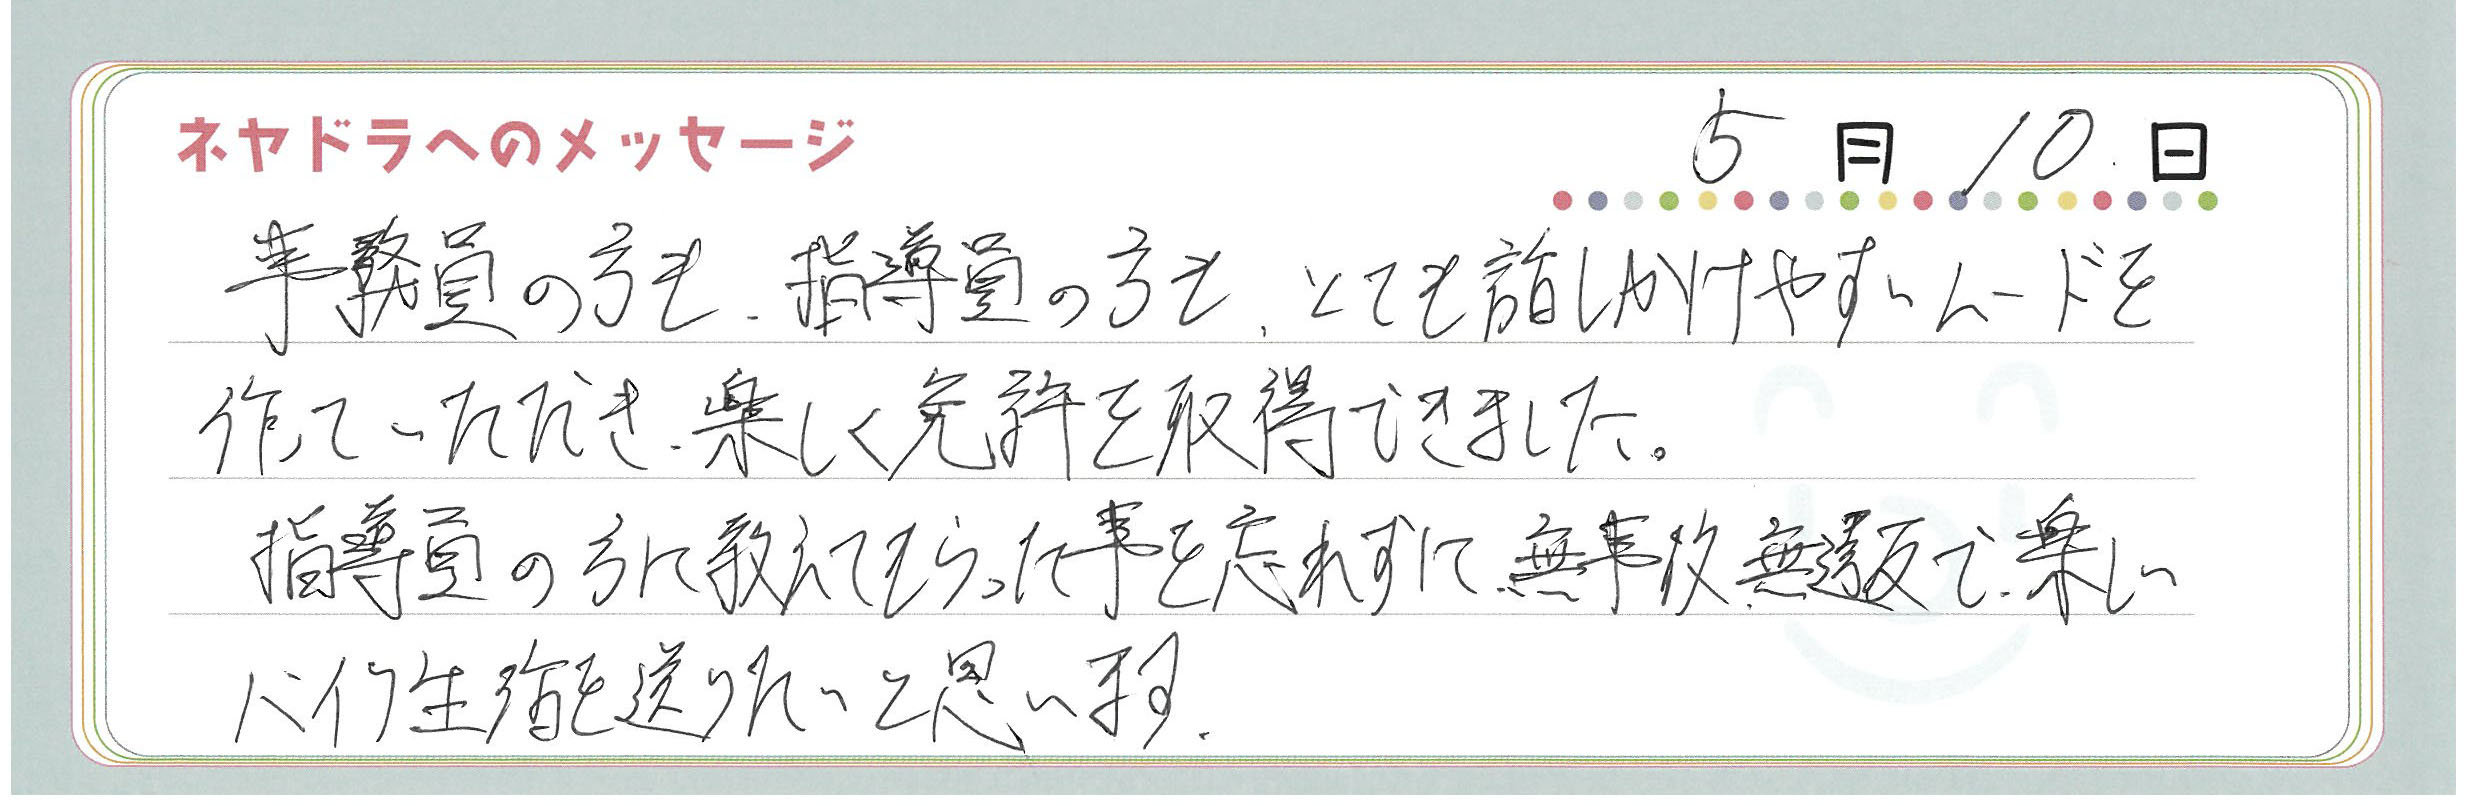 ネヤドラへのメッセージ
5月10日
事務員の方も、指導員の方も、とても話しかけやすいムードを
作っていただき、楽しく免許を取得できました。
指導員の方に教えてもらった事を忘れずに、無事故、無違反で、楽しい
バイク生活を送りたいと思います。